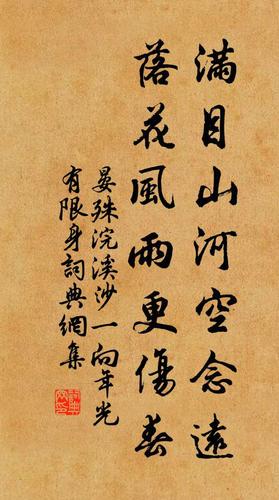 滿目山河空念遠
落花風雨更傷春
晏殊浣溪沙一向年光
有限身詞典網集